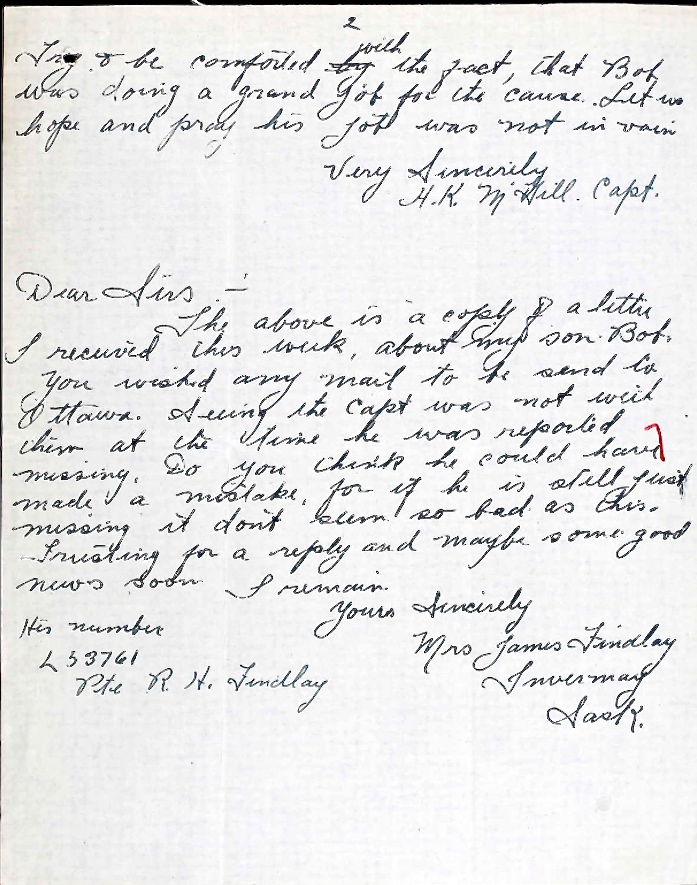 2
Try to be comforted by with the fact, that Bob
was doing a grand job for the cause. Let us
hope and pray his job was not in vain
Very Sincirely
H.K. McGill. Capt.
Dear Sirs :-
The above is a copty of a lettir
I received this week, about my son Bob.
You wished any mail to be send to
Ottawa. Seeing the Capt was not with
them at the time he was reported
missing. Do you think he could have
made a mistake, for if he is still just
missing it dont seem so bad as this.
Trusting for a reply and maybe some good
news soon I remain.
Yours Sincirely
Mrs James Findlay
Invermay
Sask.
His number
L 53761
Pte R. H. Findlay